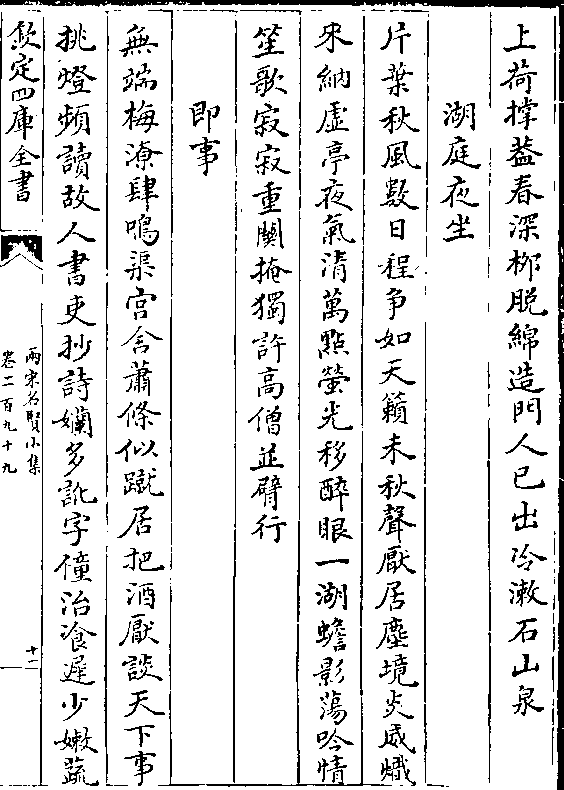 上荷撑葢春深桞脱綿造門人已出冷漱石山泉
湖庭夜坐
片葉秋風數日程争如天籟未秋聲厭居塵境炎威熾
來納虚亭夜氣清萬點螢光移醉眼一湖蟾影蕩吟情
笙歌寂寂重闗掩獨許高僧並臂行
即事
無端梅潦肆鳴渠官舎蕭條似蹴居把酒厭談天下事
挑燈頻讀故人書吏抄詩爛多訛字僮治飡遲少嫩蔬
欽定四庫全書
兩宋名賢小集
卷二百九十九
十一